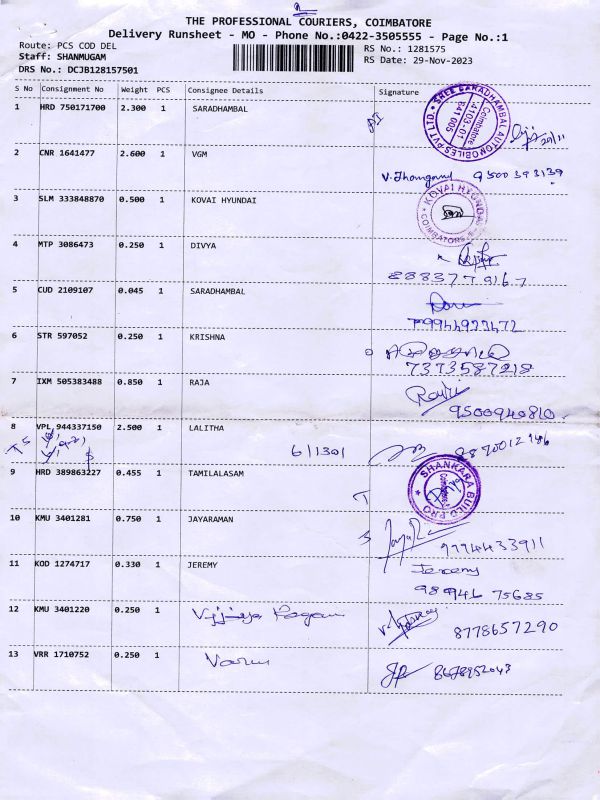 THE PROFESSIONAL COURIERS, COIMBATORE
Delivery Runsheet - MO - Phone No.:0422-3505555 - Page No.:1
Route: PCS COD DEL
RS No.: 1281575
Staff: SHANMUGAM
RS Date: 29-Nov-2023
DRS No.: DCJB128157501
S No Consignment No Weight PCS Consignee Details Signature
1 HRD 750171700 2.300 1 SARADHAMBAL
SHREE SARADHAMBAL AUTOMOBILES PVT LTD.
Coimbatore
641 005
29/11
2 CNR 1641477 2.600 1 VGM
9500393139
3 SLM 333848870 0.500 1 KOVAI HYUNDAI
KOVAI HYUNDAI
4 MTP 3086473 0.250 1 DIVYA
8883779167
5 CUD 2109107 0.045 1 SARADHAMBAL
6 STR 597052 0.250 1 KRISHNA
7373587218
7 IXM 505383488 0.850 1 RAJA
9500940810
8 VPL 944337150 2.500 1 LALITHA
6/1301
9 HRD 389863227 0.455 1 TAMILALASAM
SHANKARA BUILD PRO
10 KMU 3401281 0.750 1 JAYARAMAN
9774433911
11 KOD 1274717 0.330 1 JEREMY
Jeremy
989946 75685
12 KMU 3401220 0.250 1
8778657290
13 VRR 1710752 0.250 1 Varun
8678952043